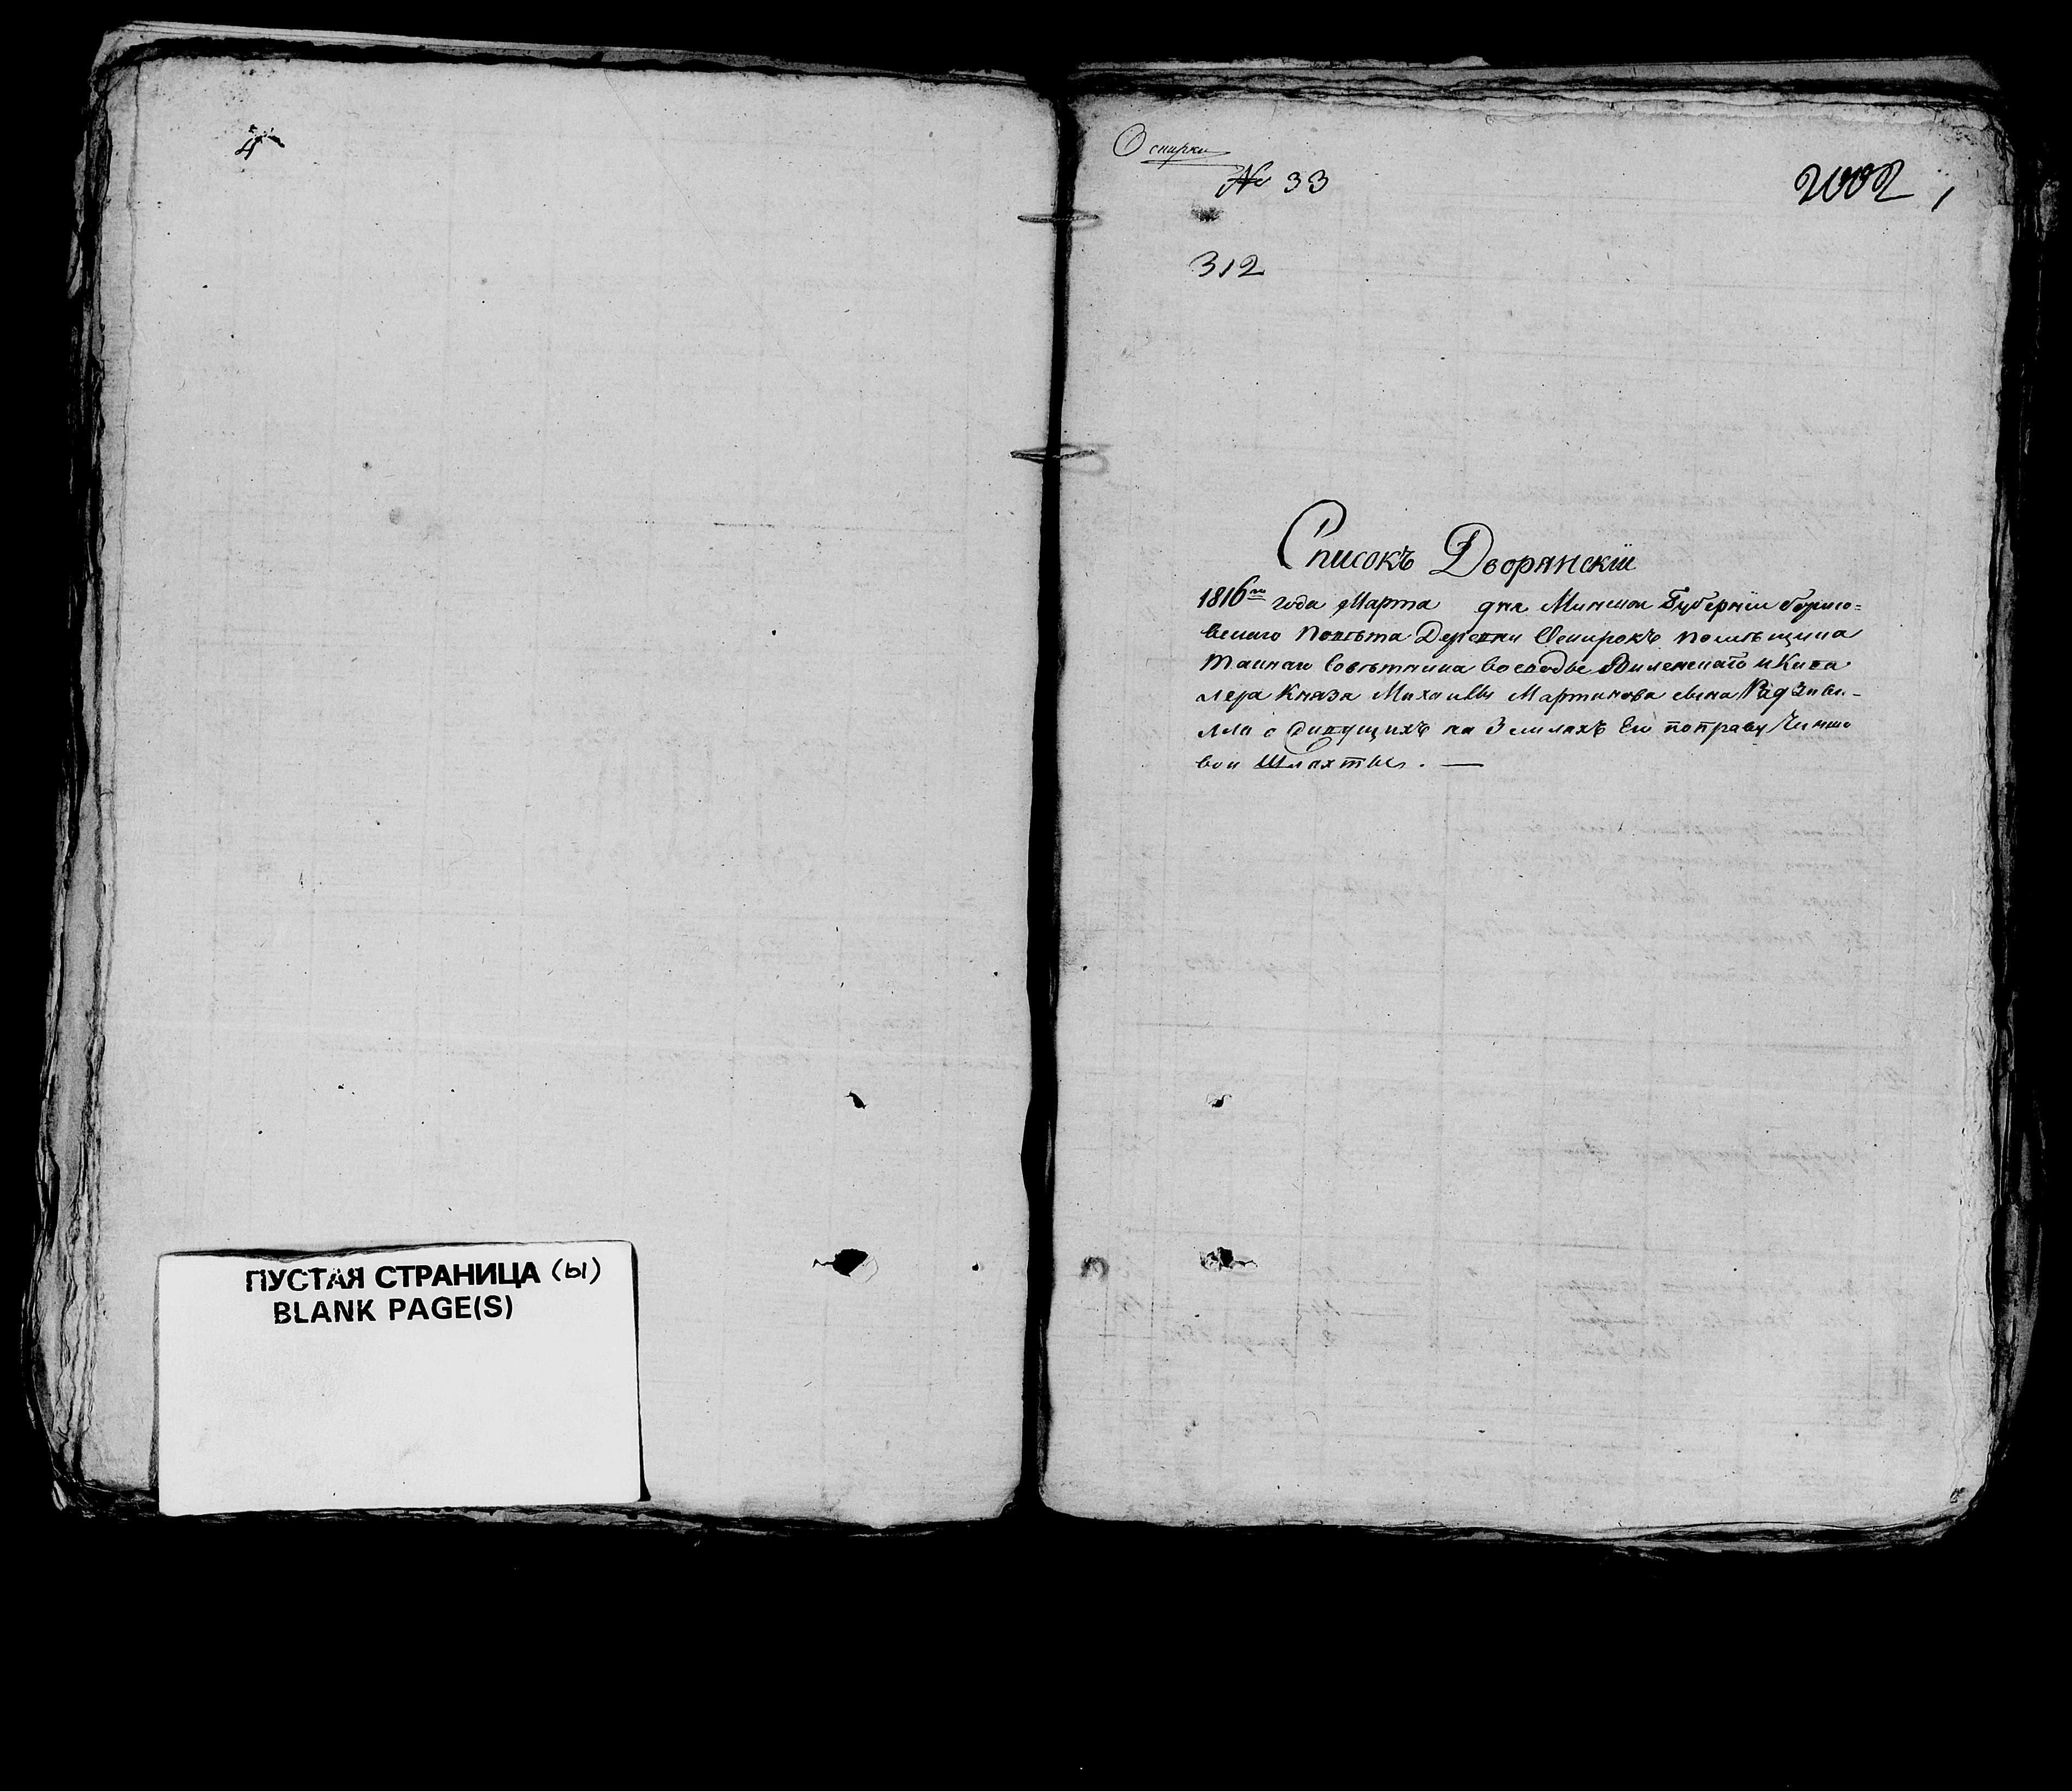 4
ПУСТАЯ СТРАНИЦА (ы)
BLANK PAGE(S)
Оспирки
№ 33
2002 1
312
Списокъ Дворянскiй
1816го года Марта дня Минской Губернiи борисо=
вскаго повѣта Деревни Осмирокъ помѣщика
таинаго Совѣтника воеводы Виленскаго и Кава
лера Князя Михаилы Мартинова сына Радзиви-
лла о сидящихъ на Землахъ Его поправу Чинше
вои Шляхты. —